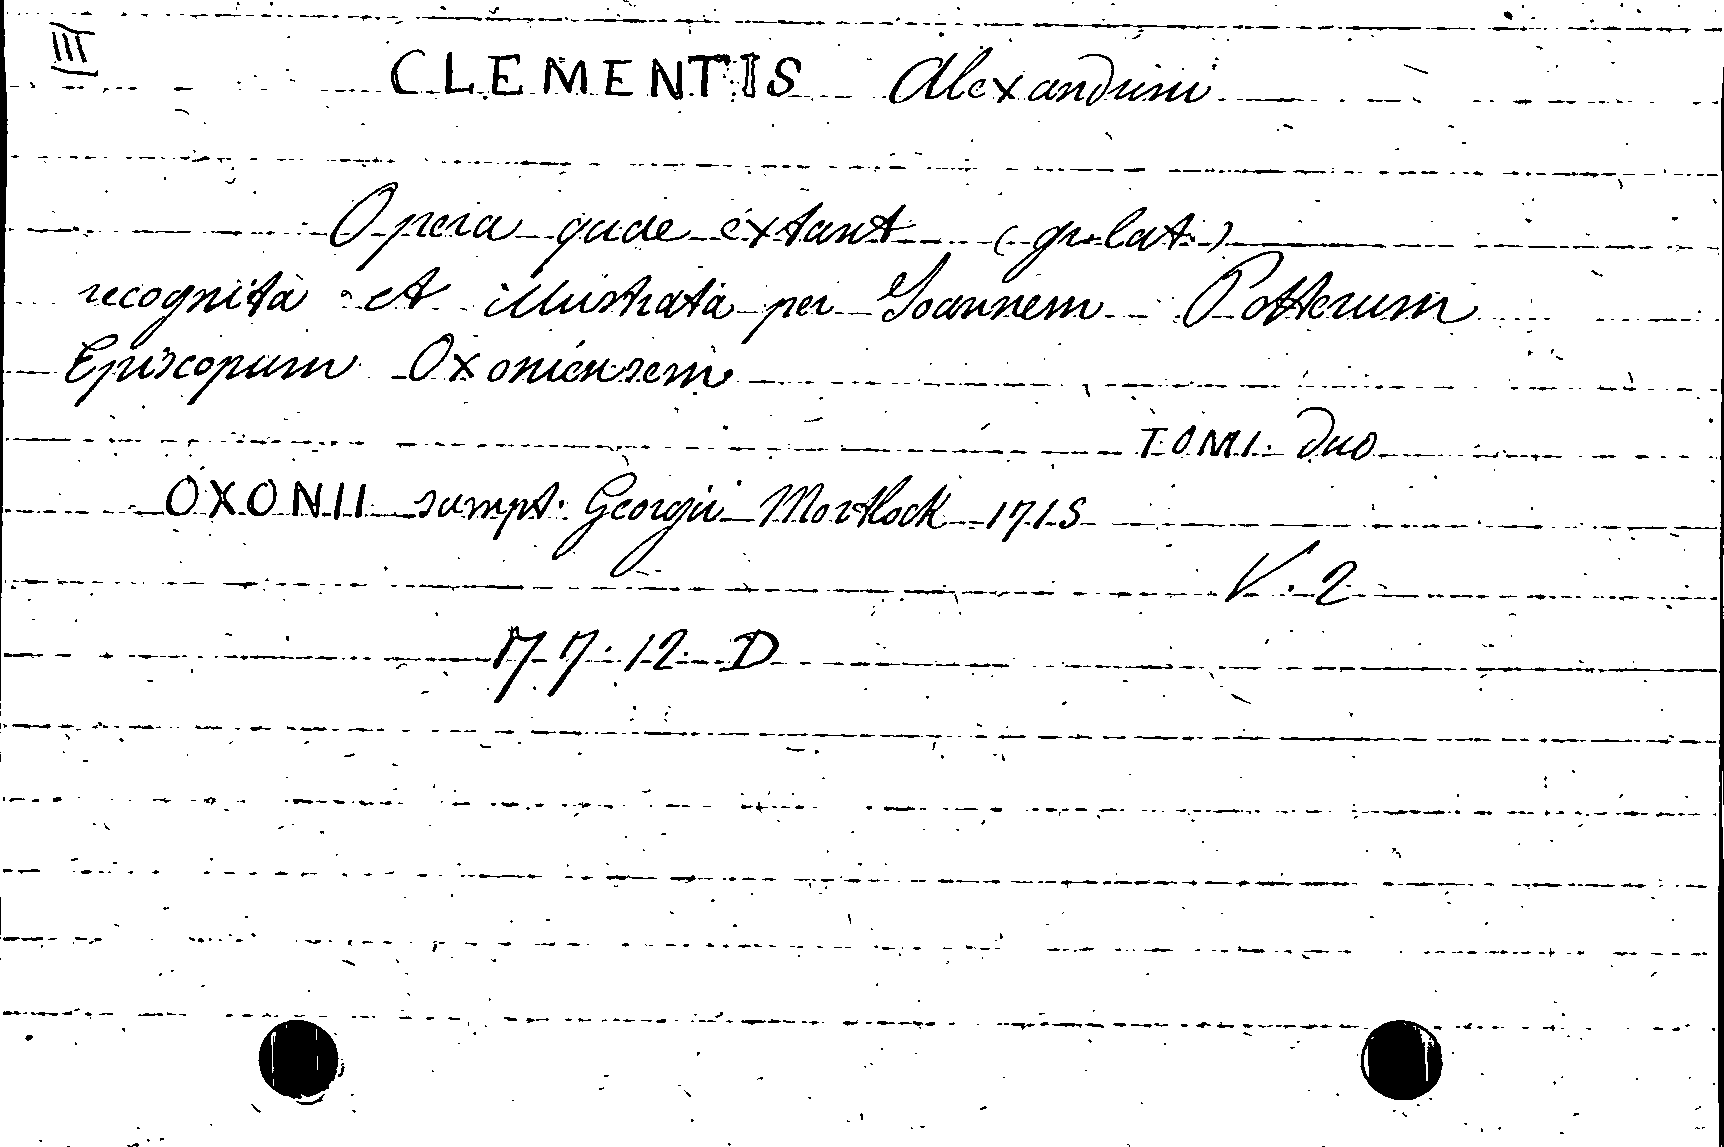 III
CLEMENTIS Alexandrini
Opera quae extant (gr. lat.)
recognita et illustrata per Joannem Potterum
Episcopum Oxoniensem
TOMI duo
OXONII sumpt. Georgii Mortlock 1715
V. 2
77. 12. D